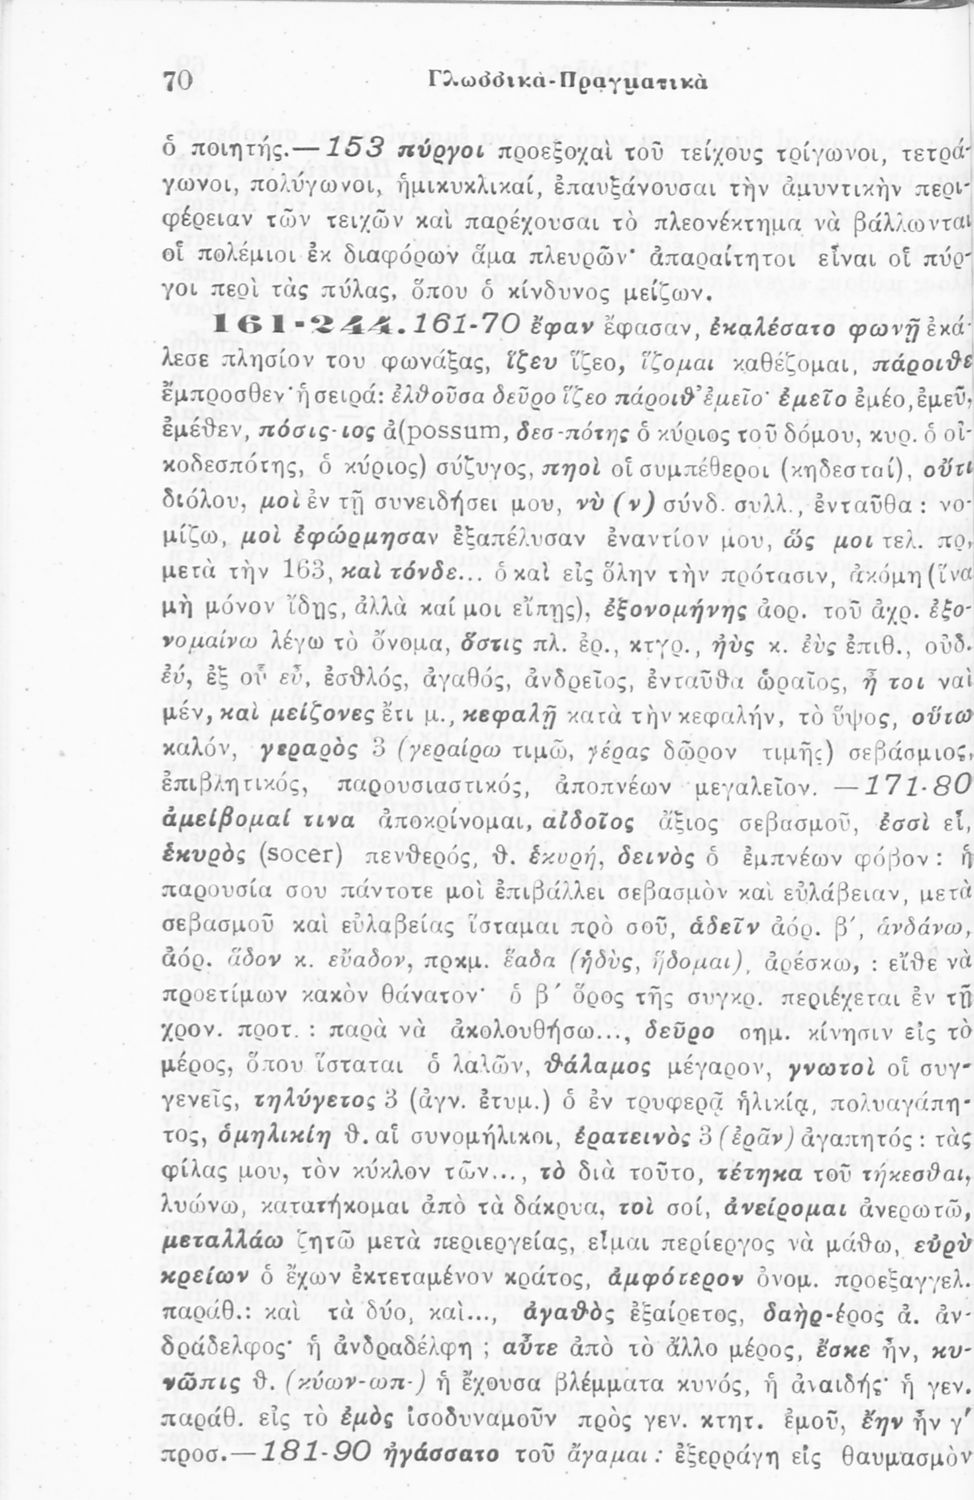 70 Γλωσσικὰ-Πραγματικὰ
ὁ ποιητής.— 153 πύργοι προεξοχαὶ τοῦ τείχους τρίγωνοι, τετρά-
γωνοι, πολύγωνοι, ἡμικυκλικαί, ἐπαυξάνουσαι τὴν ἀμυντικὴν περι-
φέρειαν τῶν τειχῶν καὶ παρέχουσαι τὸ πλεονέκτημα νὰ βάλλωνται
οἱ πολέμιοι ἐκ διαφόρων ἅμα πλευρῶν· ἀπαραίτητοι εἶναι οἱ πύρ-
γοι περὶ τὰς πύλας, ὅπου ὁ κίνδυνος μείζων.
161-244. 161-70 ἔφαν ἔφασαν, ἐκαλέσατο φωνῇ ἐκά-
λεσε πλησίον του φωνάξας, ἵζευ ἵζεο, ἵζομαι καθέζομαι, πάροιθε
ἔμπροσθεν· ἡ σειρά: ἐλθοῦσα δεῦρο ἵζεο πάροιθ' ἐμεῖο· ἐμεῖο ἐμέο, ἐμεῦ,
ἐμέθεν, πόσις-ιος ἀ(possum, δεσ-πότης ὁ κύριος τοῦ δόμου, κυρ. ὁ οἰ-
κοδεσπότης, ὁ κύριος) σύζυγος, πηοὶ οἱ συμπέθεροι (κηδεσταί), οὔτι
διόλου, μοὶ ἐν τῇ συνειδήσει μου, νὺ (ν) σύνδ. συλλ., ἐνταῦθα : νο-
μίζω, μοὶ ἐφώρμησαν ἐξαπέλυσαν ἐναντίον μου, ὥς μοι τελ. πρ,
μετὰ τὴν 163, καὶ τόνδε... ὁ καὶ εἰς ὅλην τὴν πρότασιν, ἀκόμη (ἵνα
μὴ μόνον ἴδῃς, ἀλλὰ καί μοι εἴπῃς), ἐξονομήνῃς ἀορ. τοῦ ἀχρ. ἐξο-
νομαίνω λέγω τὸ ὄνομα, ὅστις πλ. ἐρ., κτγρ., ἠὺς κ. ἐὺς ἐπιθ., οὐδ.
ἐύ, ἐξ οὗ εὖ, ἐσθλός, ἀγαθός, ἀνδρεῖος, ἐνταῦθα ὡραῖος, ἦ τοι ναὶ
μέν, καὶ μείζονες ἔτι μ., κεφαλῇ κατὰ τὴν κεφαλήν, τὸ ὕψος, οὕτω
καλόν, γεραρὸς 3 (γεραίρω τιμῶ, γέρας δῶρον τιμῆς) σεβάσμιος,
ἐπιβλητικός, παρουσιαστικός, ἀποπνέων μεγαλεῖον. — 171-80
ἀμείβομαί τινα ἀποκρίνομαι, αἰδοῖος ἄξιος σεβασμοῦ, ἐσσὶ εἶ,
ἑκυρὸς (socer) πενθερός, θ. ἑκυρή, δεινὸς ὁ ἐμπνέων φόβον : ἡ
παρουσία σου πάντοτε μοὶ ἐπιβάλλει σεβασμὸν καὶ εὐλάβειαν, μετὰ
σεβασμοῦ καὶ εὐλαβείας ἵσταμαι πρὸ σοῦ, ἁδεῖν ἀόρ. β΄, ἁνδάνω,
ἀόρ. ἅδον κ. εὔαδον, πρκμ. ἕαδα (ἡδὺς, ἥδομαι), ἀρέσκω, : εἴθε νὰ
προετίμων κακὸν θάνατον· ὁ β΄ ὅρος τῆς συγκρ. περιέχεται ἐν τῇ
χρον. προτ. : παρὰ νὰ ἀκολουθήσω..., δεῦρο σημ. κίνησιν εἰς τὸ
μέρος, ὅπου ἵσταται ὁ λαλῶν, θάλαμος μέγαρον, γνωτοὶ οἱ συγ-
γενεῖς, τηλύγετος 3 (ἀγν. ἐτυμ.) ὁ ἐν τρυφερᾷ ἡλικίᾳ, πολυαγάπη-
τος, ὁμηλικίη θ. αἱ συνομήλικοι, ἐρατεινὸς 3 (ἐρᾶν) ἀγαπητός : τὰς
φίλας μου, τὸν κύκλον τῶν..., τὸ διὰ τοῦτο, τέτηκα τοῦ τήκεσθαι,
λυώνω, κατατήκομαι ἀπὸ τὰ δάκρυα, τοὶ σοί, ἀνείρομαι ἀνερωτῶ,
μεταλλάω ζητῶ μετὰ περιεργείας, εἶμαι περίεργος νὰ μάθω, εὐρὺ
κρείων ὁ ἔχων ἐκτεταμένον κράτος, ἀμφότερον ὀνομ. προεξαγγελ.
παράθ.: καὶ τὰ δύο, καὶ..., ἀγαθὸς ἐξαίρετος, δαὴρ-έρος ἀ. ἀν-
δράδελφος· ἡ ἀνδραδέλφη ; αὖτε ἀπὸ τὸ ἄλλο μέρος, ἔσκε ἦν, κυ-
νῶπις θ. (κύων-ωπ-) ἡ ἔχουσα βλέμματα κυνός, ἡ ἀναιδής· ἡ γεν.
παράθ. εἰς τὸ ἐμὸς ἰσοδυναμοῦν πρὸς γεν. κτητ. ἐμοῦ, ἔην ἦν γ΄
προσ.— 181-90 ἠγάσσατο τοῦ ἄγαμαι : ἐξερράγη εἰς θαυμασμὸν